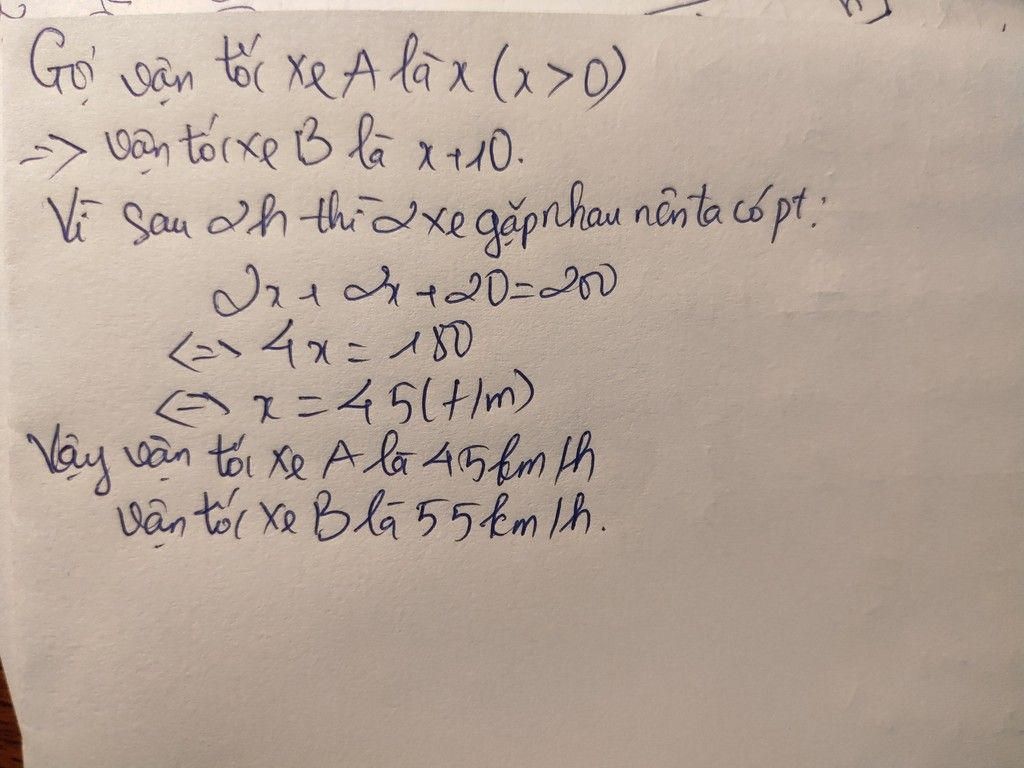 Gọi vận tốc xe A là x (x > 0)
=> vận tốc xe B là x+10.
Vì sau 2h thì 2 xe gặp nhau nên ta có pt:
2x + 2x + 20 = 200
<=> 4x = 180
<=> x = 45 (t/m)
Vậy vận tốc xe A là 45km/h
vận tốc xe B là 55km/h.